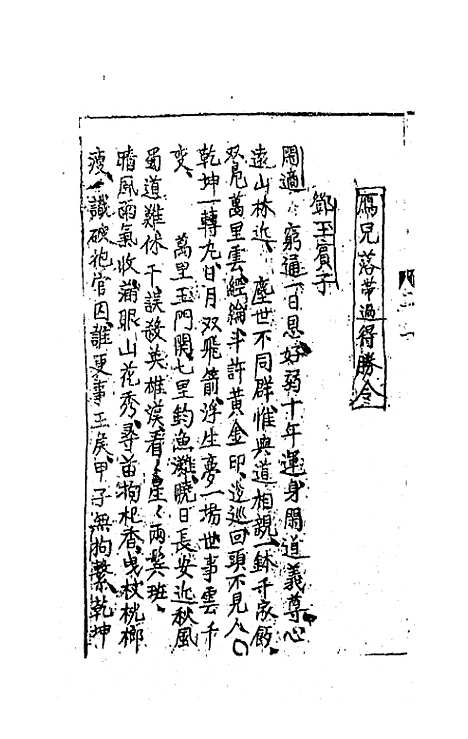 鴈兒落帶過得勝令
鄧玉賓子
閑適 窮通一日恩好弱十年運身閑道義尊心
遠山林近 塵世不同群惟與道相親一鉢千家飯
双鳧萬里雲經綸斗許黃金印逡巡回頭不見人〇
乾坤一轉丸日月双飛箭浮生夢一場世事雲千
变 萬里玉門関七里釣魚灘曉日長安近秋風
蜀道難休干誤殺英雄漢看星〻両鬓斑
晴風雨氣收滿眼山花秀尋苗枸杞香曳杖桄榔
瘦識破抱官囚誰更事王矦甲子無拘繫乾坤